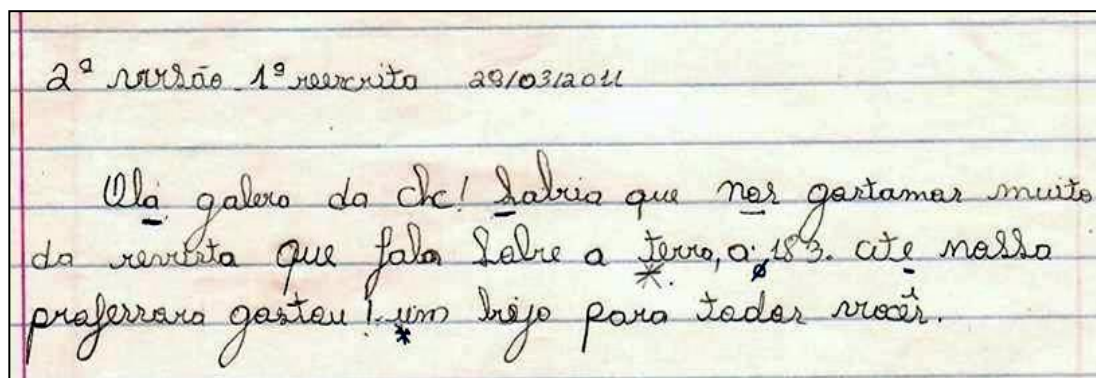 2ª versão 1ª reescrita 29/03/2011
Olá galera da chc! Sabria que nos gostamos muito
da revista que fala Sobre a terra, a 183. até nossa
professora gostou! um beijo para todos vocês.